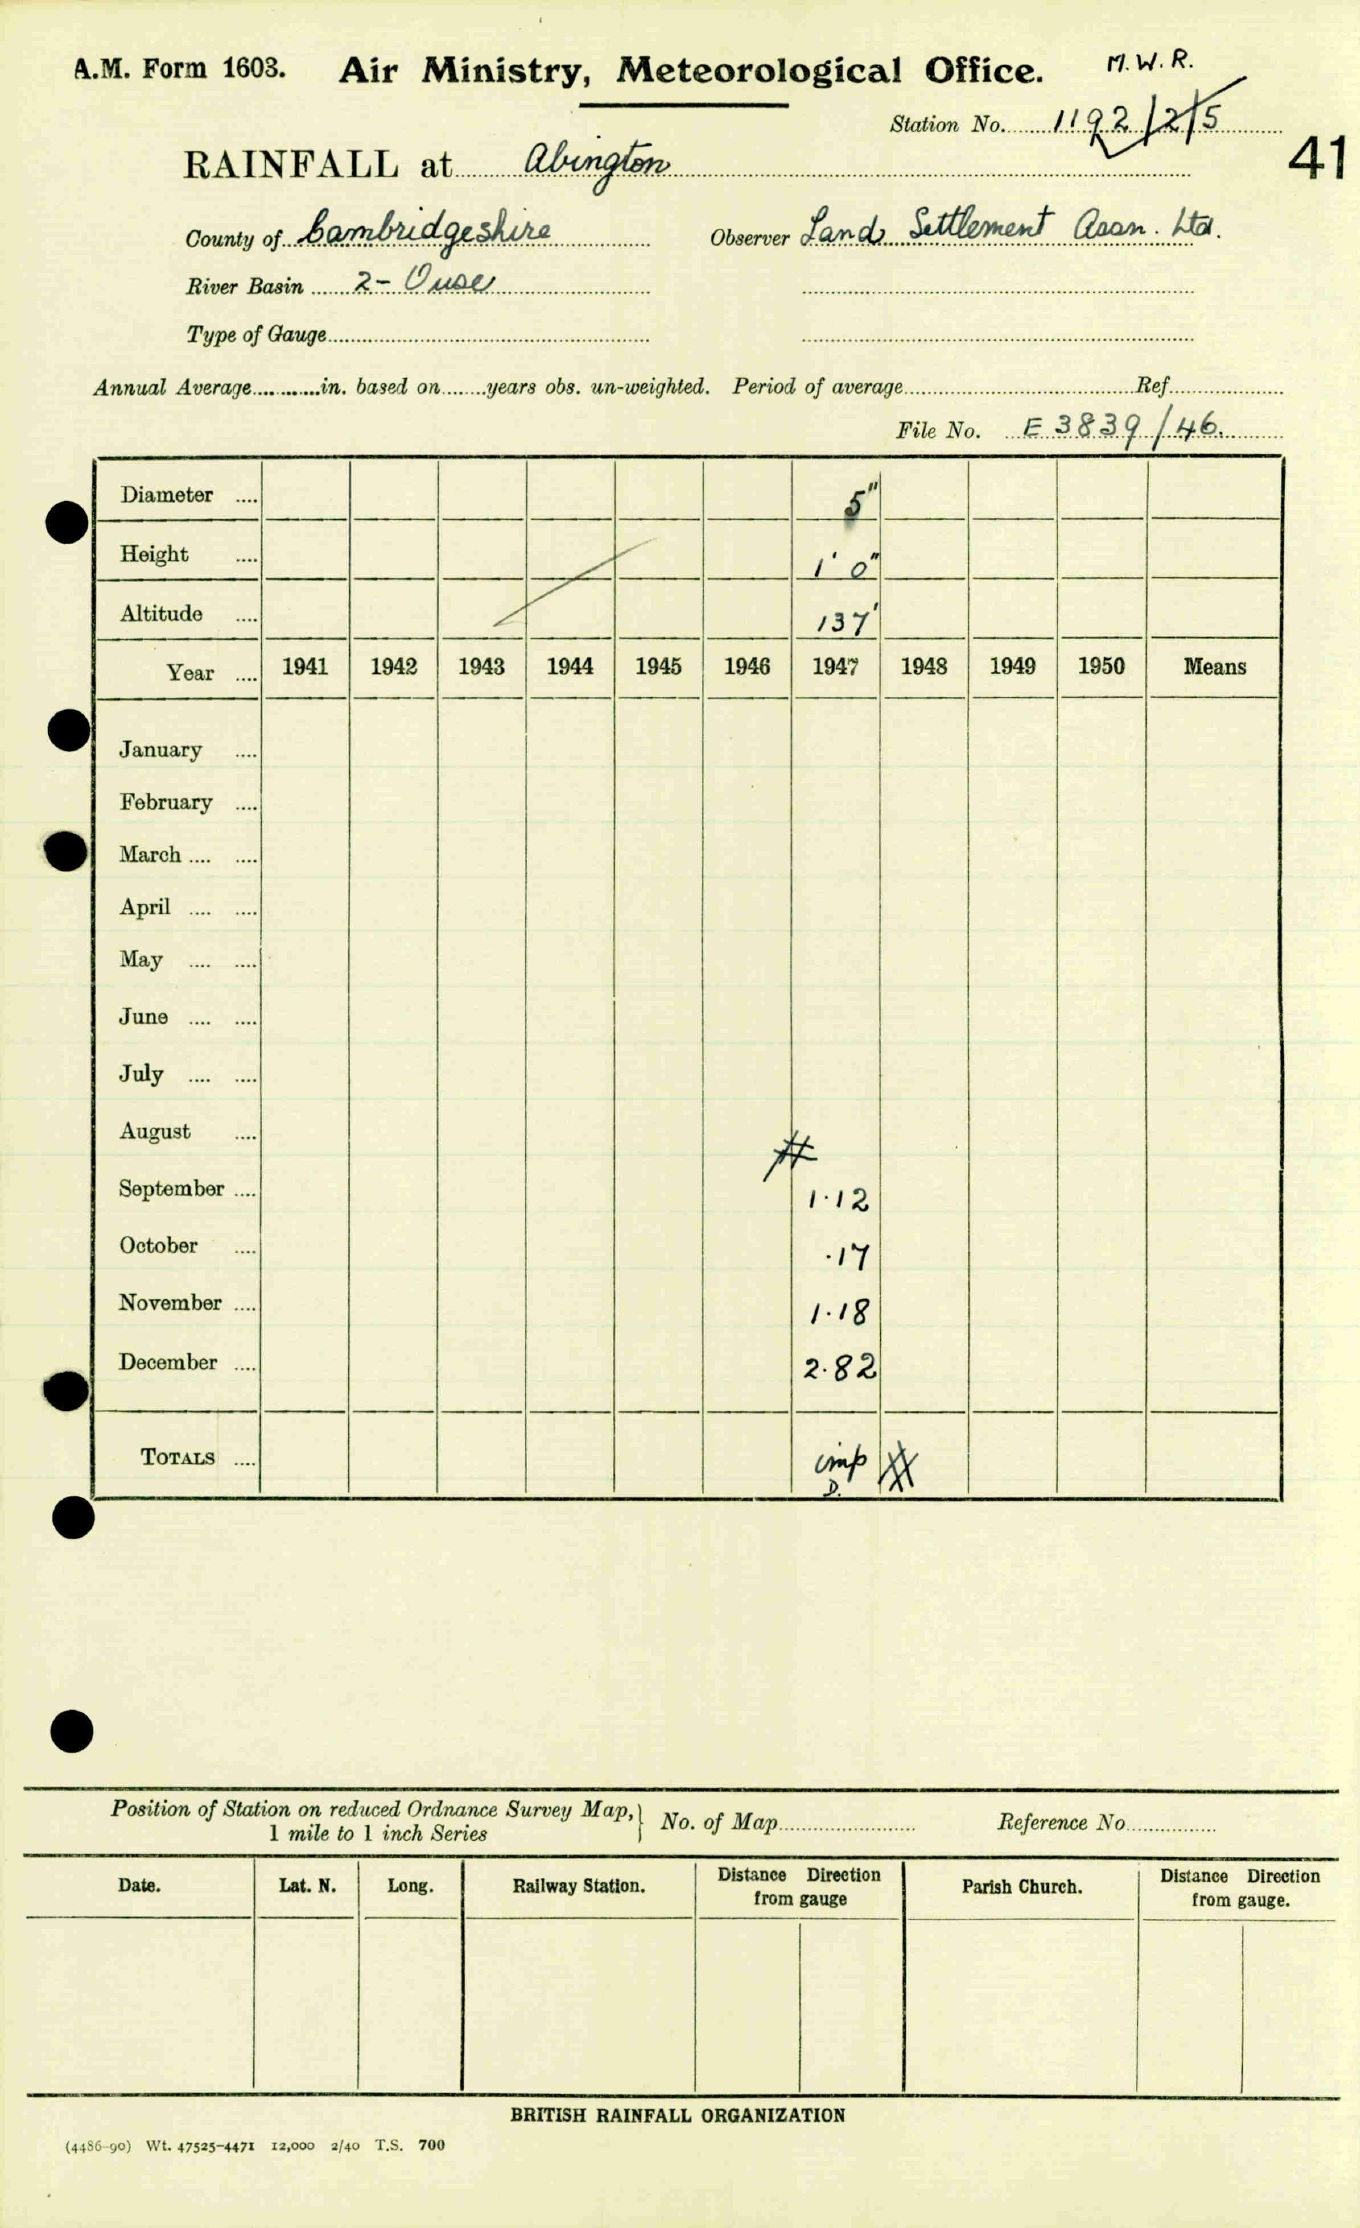 A.M. Form 1603. Air Ministry, Meteorological Office. M.W.R.
Station No. 1192/2/5
41
RAINFALL at Abington
County of Cambridgeshire Observer Land Settlement Assn. Ltd.
River Basin 2 - Ouse
Type of Gauge
Annual Average............in. based on.......years obs. un-weighted. Period of average Ref.
File No. E 3839/46.
Diameter .... 5"
Height .... 1' 0"
Altitude .... 137'
Year .... 1941 1942 1943 1944 1945 1946 1947 1948 1949 1950 Means
January ....
February ....
March .... ....
April .... ....
May .... ....
June .... ....
July .... ....
August ....
September .... 1.12
October .... .17
November .... 1.18
December .... 2.82
TOTALS .... imp
D.
Position of Station on reduced Ordnance Survey Map, 1 mile to 1 inch Series } No. of Map Reference No.
Date. Lat. N. Long. Railway Station. Distance Direction from gauge Parish Church. Distance Direction from gauge.
BRITISH RAINFALL ORGANIZATION
(4486-90) Wt. 47525-4471 12,000 2/40 T.S. 700